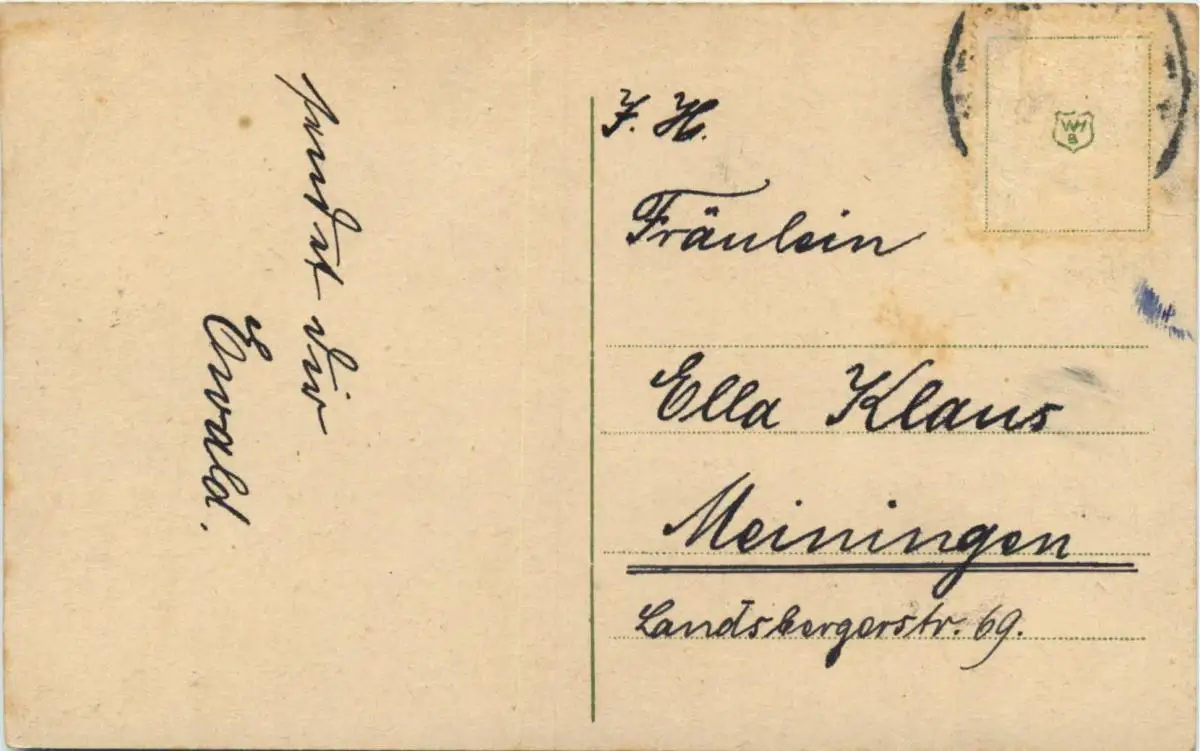 sendet dir
Ewald.
J. H.
Fräulein
Ella Klaus
Meiningen
Landsbergerstr. 69.
WH
B